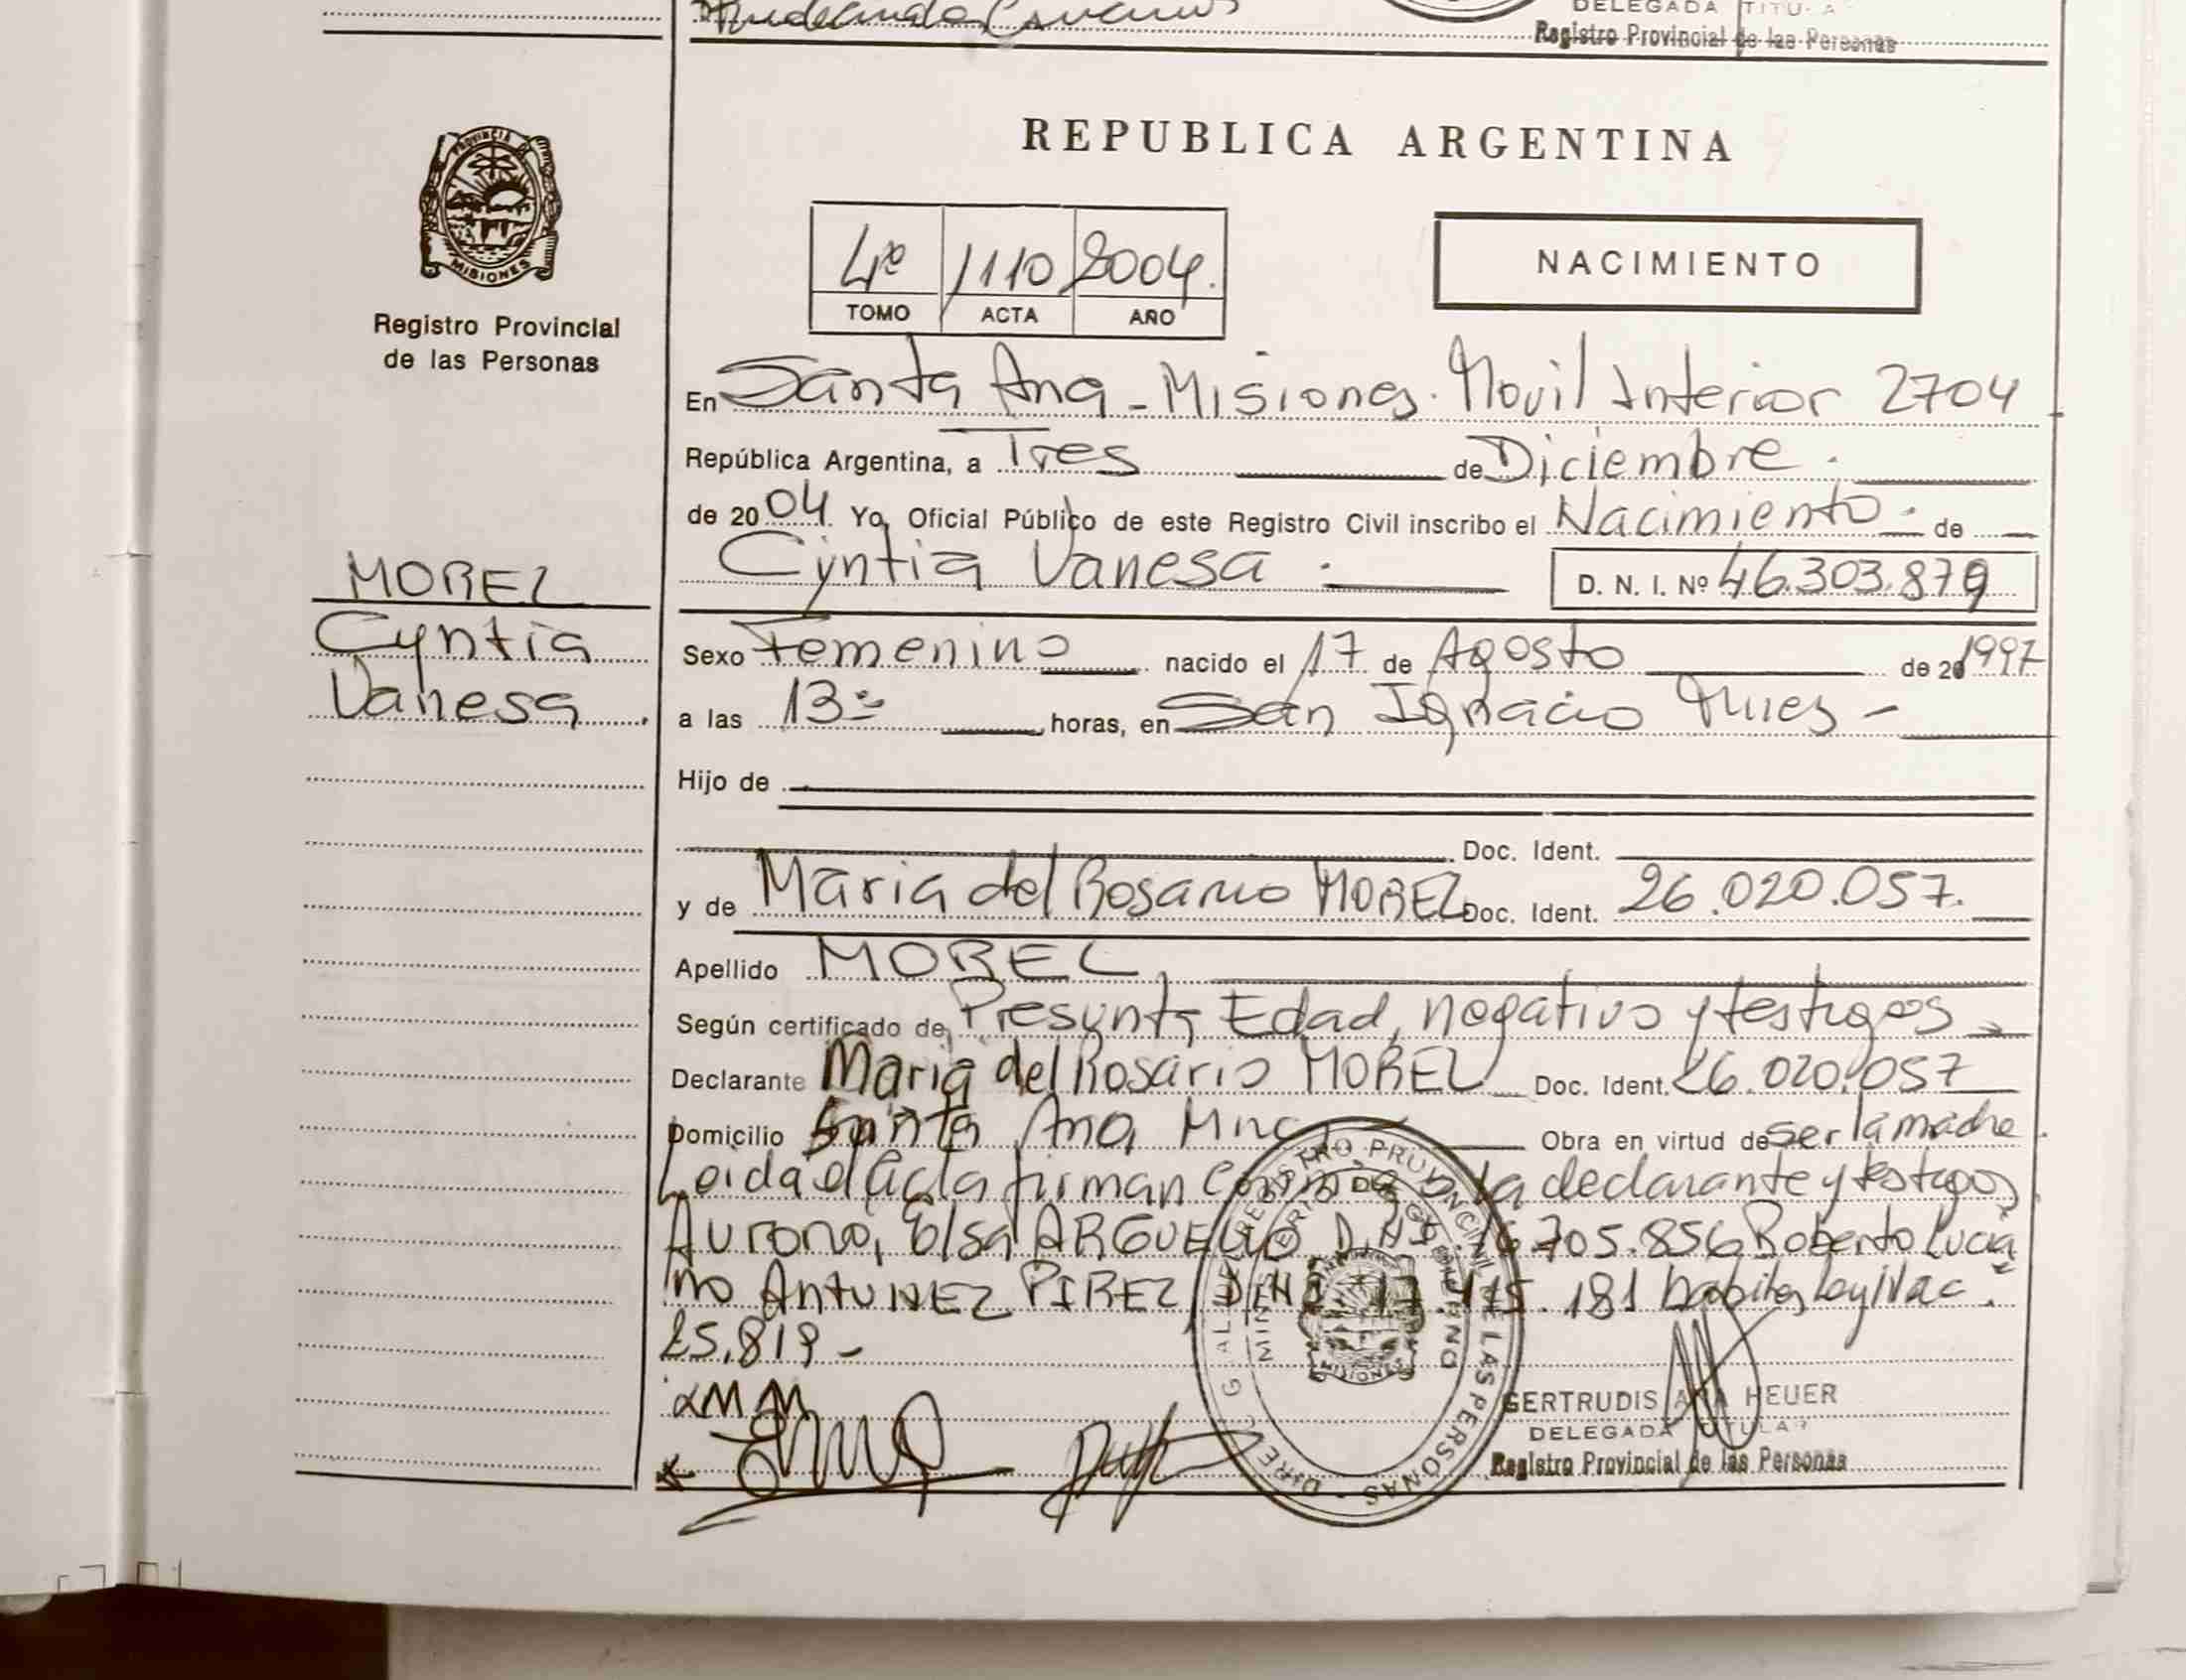 DELEGADA TITULA
Registro Provincial de las Personas
REPUBLICA ARGENTINA
PROVINCIA DE
MISIONES
Registro Provincial
de las Personas
4º 1110 2004.
TOMO ACTA AÑO
NACIMIENTO
En Santa Ana - Misiones. Movil Interior 2704
República Argentina, a Tres de Diciembre.
de 2004 Yo, Oficial Público de este Registro Civil inscribo el Nacimiento - de
Cyntia Vanesa. D. N. I. Nº 46.303.879
MOREL
Cyntia
Vanesa
Sexo Femenino nacido el 17 de Agosto de 20 1997
a las 13 horas, en San Ignacio Mnes -
Hijo de
Doc. Ident.
y de Maria del Rosario MOREL Doc. Ident. 26.020.057.
Apellido MOREL
Según certificado de Presunta Edad, negativo y testigos
Declarante Maria del Rosario MOREL Doc. Ident. 26.020.057
Domicilio Santa Ana, Mnes Obra en virtud de ser la madre
Leida el Acta firman la declarante y testigos
Elsa ARGUELLO D.N.I. 16.705.856 Roberto Lucia
no ANTUNEZ PIREZ, DNI 17.115.181 Ley Nac.
25.819 -
MM
GERTRUDIS ANA HEUER
DELEGADA TITULAR
Registro Provincial de las Personas
DIREC. GRAL. DEL REGISTRO PROVINCIAL DE LAS PERSONAS
MINISTERIO DE GOBIERNO
MISIONES